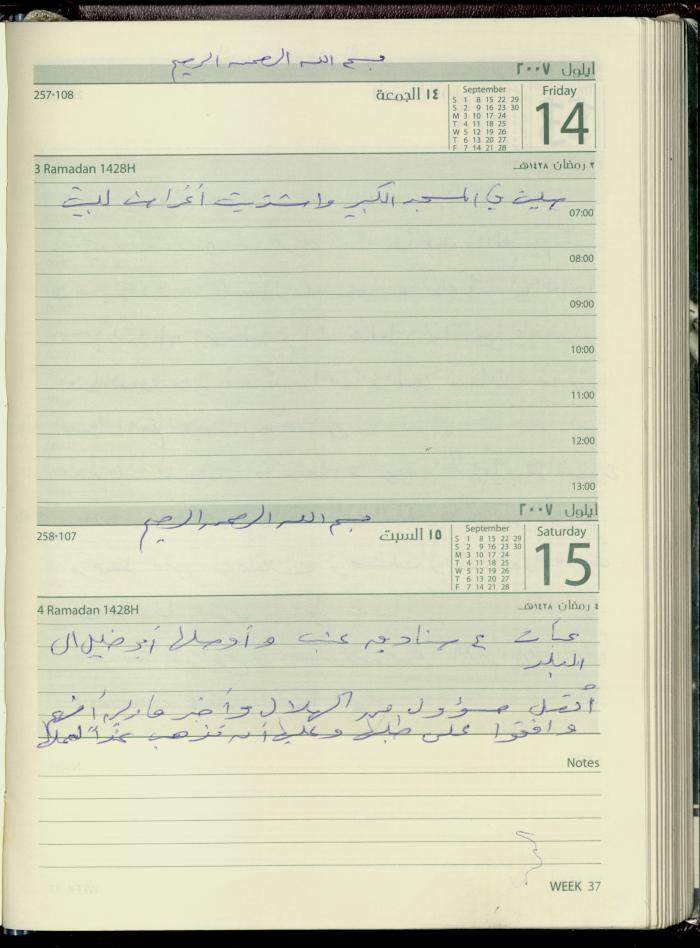 بسم الله الرحمن الرحيم
ايلول ٢٠٠٧
257-108
١٤ الجمعة
September
S 1 8 15 22 29
S 2 9 16 23 30
M 3 10 17 24
T 4 11 18 25
W 5 12 19 26
T 6 13 20 27
F 7 14 21 28
Friday
14
3 Ramadan 1428H
٢ رمضان ١٤٢٨هـ
صليت في المسجد الكبير واشتريت أغراض للبيت
07:00
08:00
09:00
10:00
11:00
12:00
13:00
ايلول ٢٠٠٧
بسم الله الرحمن الرحيم
258-107
١٥ السبت
September
S 1 8 15 22 29
S 2 9 16 23 30
M 3 10 17 24
T 4 11 18 25
W 5 12 19 26
T 6 13 20 27
F 7 14 21 28
Saturday
15
4 Ramadan 1428H
٤ رمضان ١٤٢٨هـ
عبأت ٤ صناديق عنب وأوصلها أبو خليل الى
البلد
أتصل مسؤول من الهلال وأخبر أنهم
وافقوا على طلبها وعليها أن تذهب غداً لعملها
Notes
WEEK 37